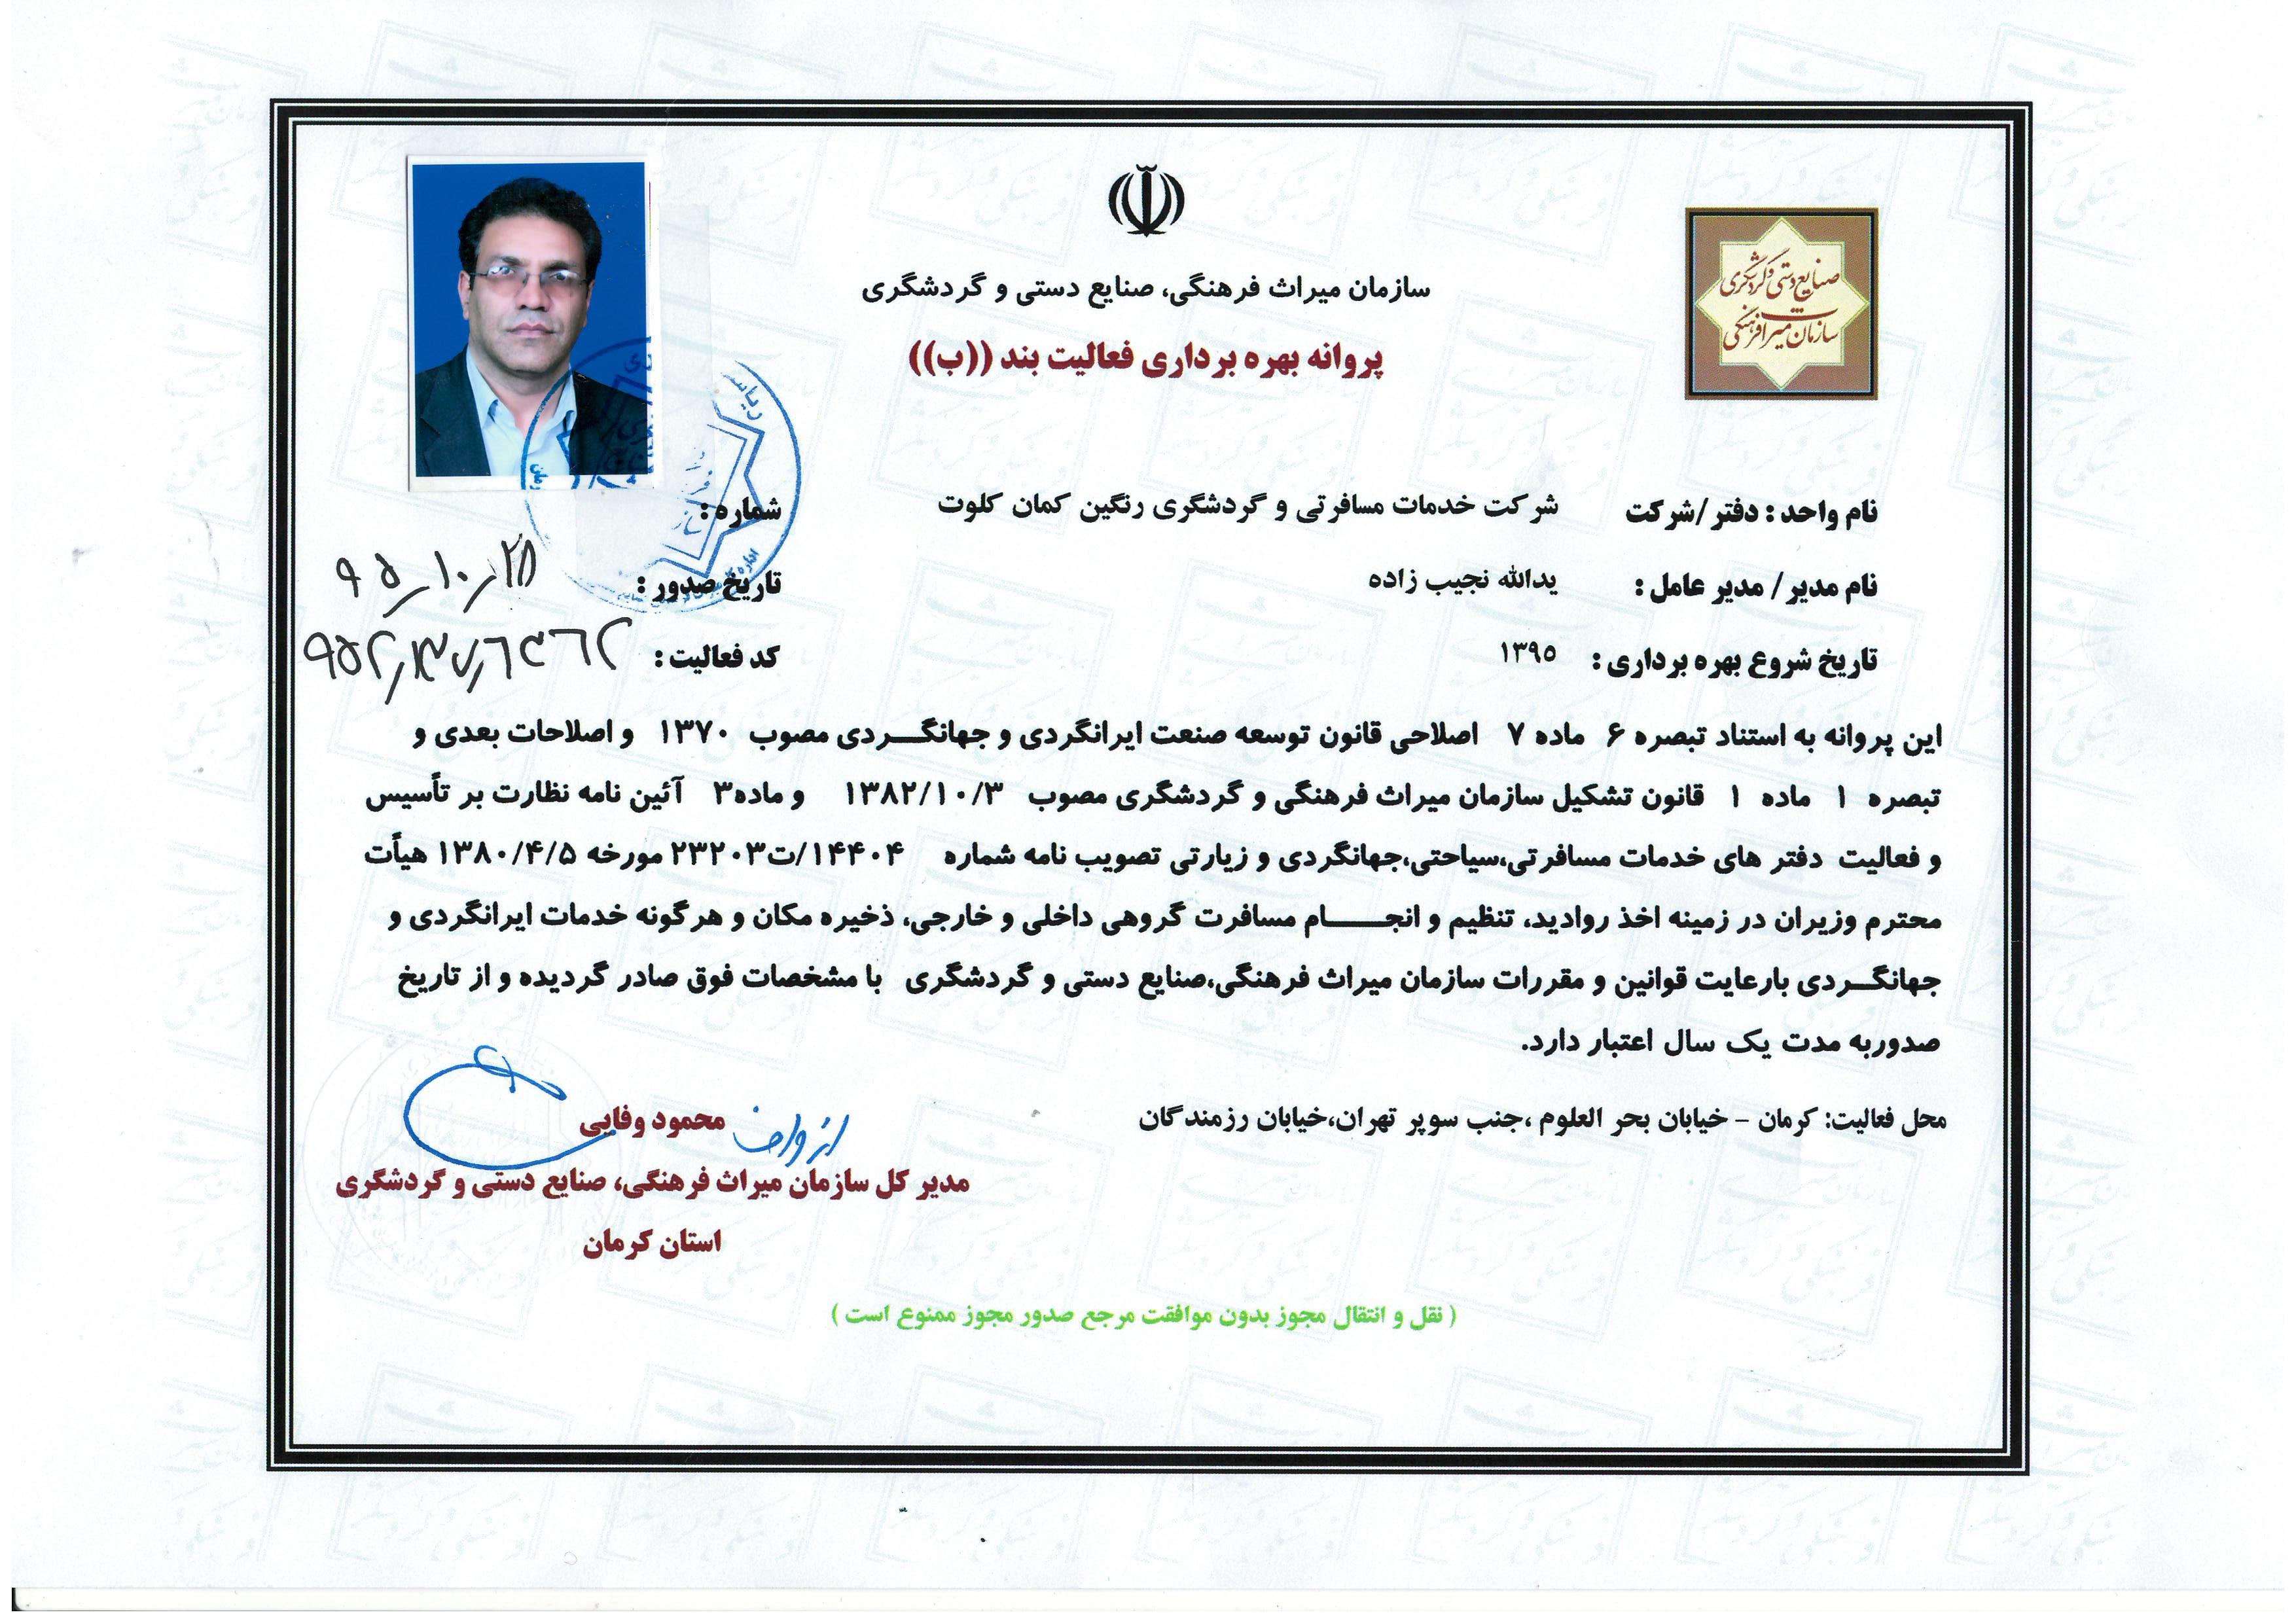 سازمان میراث فرهنگی، صنایع دستی و گردشگری
پروانه بهره برداری فعالیت بند ((ب))
صنایع دستی و گردشگری
سازمان میراث فرهنگی
نام واحد : دفتر /شرکت شرکت خدمات مسافرتی و گردشگری رنگین کمان کلوت
شماره :
نام مدیر / مدیر عامل : یدالله نجیب زاده
تاریخ صدور : ۹۵/۱۰/۲۸
تاریخ شروع بهره برداری : ۱۳۹۵
کد فعالیت :
این پروانه به استناد تبصره ۶ ماده ۷ اصلاحی قانون توسعه صنعت ایرانگردی و جهانگـــردی مصوب ۱۳۷۰ و اصلاحات بعدی و
تبصره ۱ ماده ۱ قانون تشکیل سازمان میراث فرهنگی و گردشگری مصوب ۱۳۸۲/۱۰/۳ و ماده۳ آئین نامه نظارت بر تأسیس
و فعالیت دفتر های خدمات مسافرتی،سیاحتی،جهانگردی و زیارتی تصویب نامه شماره ۱۴۴۰۴/ت۲۳۲۰۳ مورخه ۱۳۸۰/۴/۵ هیأت
محترم وزیران در زمینه اخذ روادید، تنظیم و انجـــــام مسافرت گروهی داخلی و خارجی، ذخیره مکان و هرگونه خدمات ایرانگردی و
جهانگـــردی بارعایت قوانین و مقررات سازمان میراث فرهنگی،صنایع دستی و گردشگری با مشخصات فوق صادر گردیده و از تاریخ
صدوربه مدت یک سال اعتبار دارد.
محل فعالیت: کرمان – خیابان بحر العلوم ،جنب سوپر تهران،خیابان رزمندگان
از طرف محمود وفایی
مدیر کل سازمان میراث فرهنگی، صنایع دستی و گردشگری
استان کرمان
( نقل و انتقال مجوز بدون موافقت مرجع صدور مجوز ممنوع است )